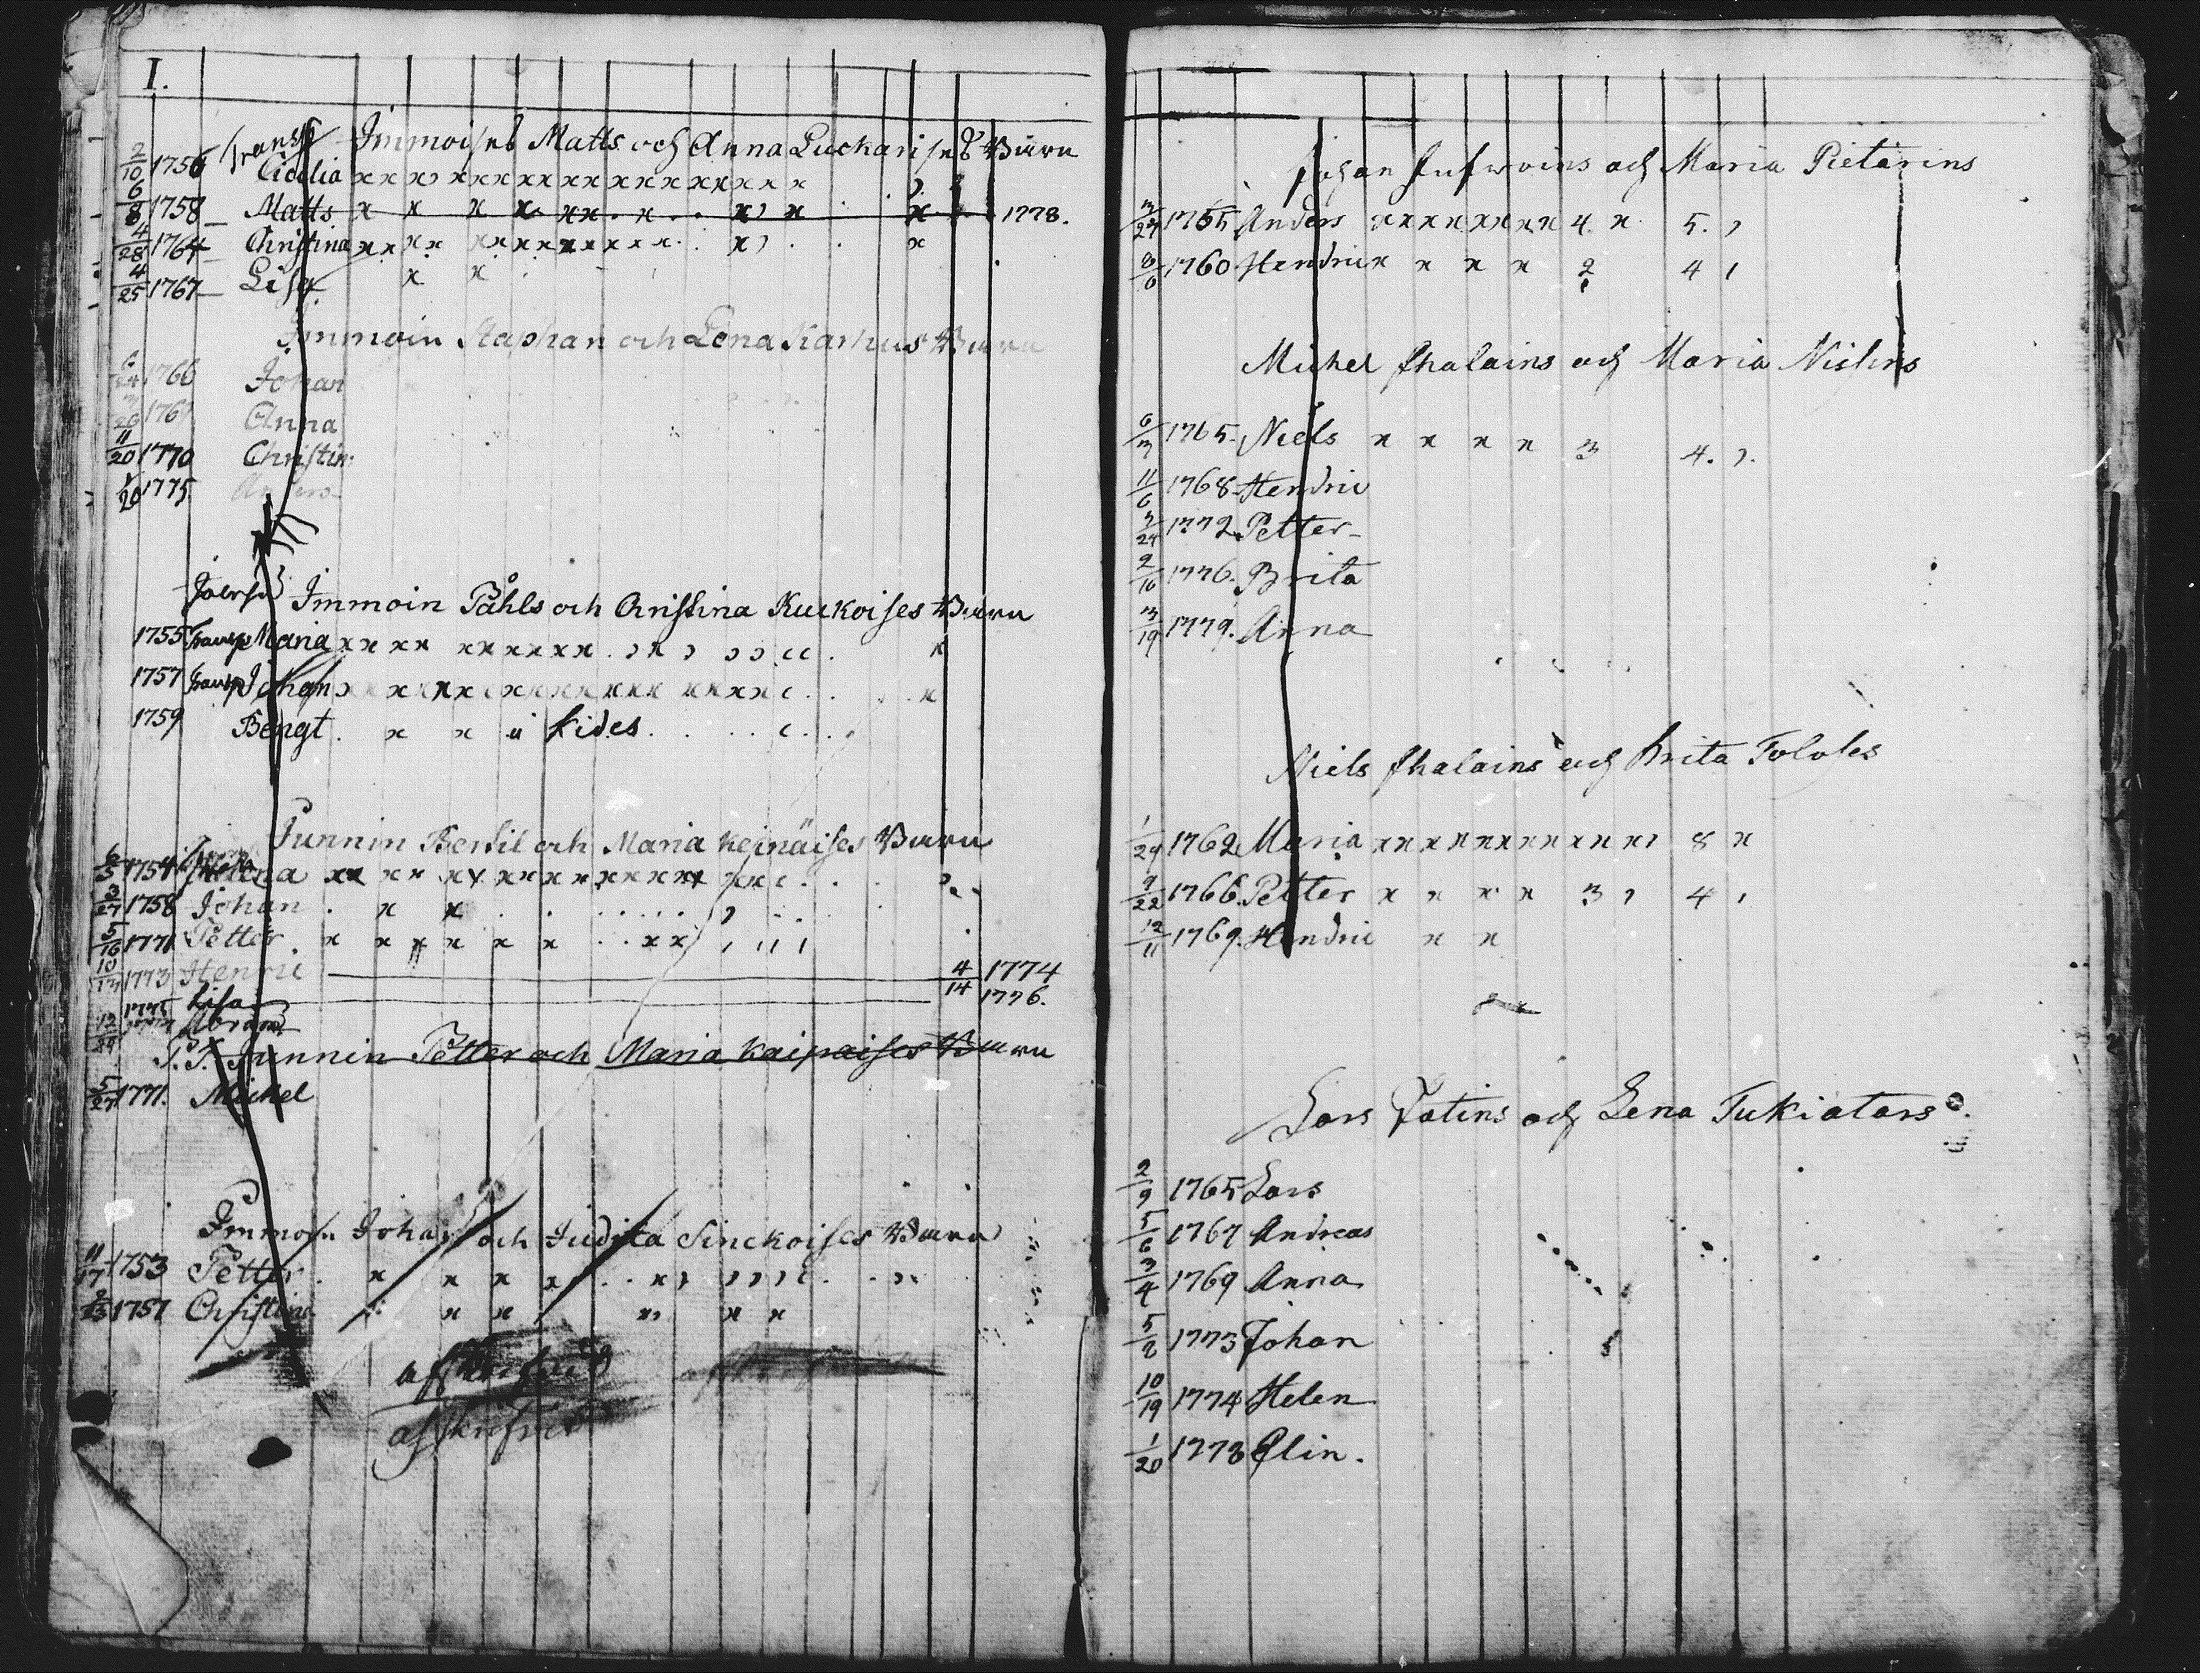 I.
Transp Immoises Matts och Anna Luckarises Barn
2/10 1756 Cicilia x x x x x x x x x x x x x x x x x x
6/8 1758 Matts x x x x x x x x x x 1778.
4/28 1764 Christina x x x x x x x x x x x x x x
4/25 1767 Lisa x x
Immoin Staphan och Lena Karhus Barn
1766 Johan
176 Anna
11/20 1770 Christin
1/20 1775
Immoin Påhls och Christina Kuckoises Barn
1755 Transp Maria x x x x x x x x x x
1757 Transp Johan x x x x x x x x x x x x x x x x
1759 Bengt x x
Punnin Bertil och Maria Keinäises Barn
6/5 1754 Helena x x x x x x x x x x x x x x x x
3/27 1758 Johan x x
5/16 1771 Petter x x x x x x x x
10/13 1773 Henric 4/14 1774
1775 Lisa 1776.
12/29 Abram
P. J. Punnin Petter och Maria Kaipaises Barn
5/27 1771. Michel
Immoin Johan och Judita Sinckoises Barn
11/17 1753 Petter x x x x x
1757 Christina x x x x x
afskrifvid
afskrifvid
Johan och Maria Pietärins
3/27 1755 Anders x x x x x x x x 4 x 5.
1760 Hendric x x x x 2 4
Michel Ihalains och Maria Nislins
6/3 1765. Niels x x x x 3 4.
11/6 1768 Hendric
1772 Petter
2/16 1776. Brita
3/19 1779. Anna
Niels Ihalains och Brita Tololes
1/29 1762 Maria x x x x x x x x x x x 8 x
9/22 1766. Petter x x x x 3 4
12/11 1769. Hendric x x
Lars Totins och Lena Tukiatars
2/9 1765 Lars
5/6 1767 Andreas
3/4 1769 Anna
5/2 1773 Johan
10/19 1774 Helen
1/20 1778 Elin.